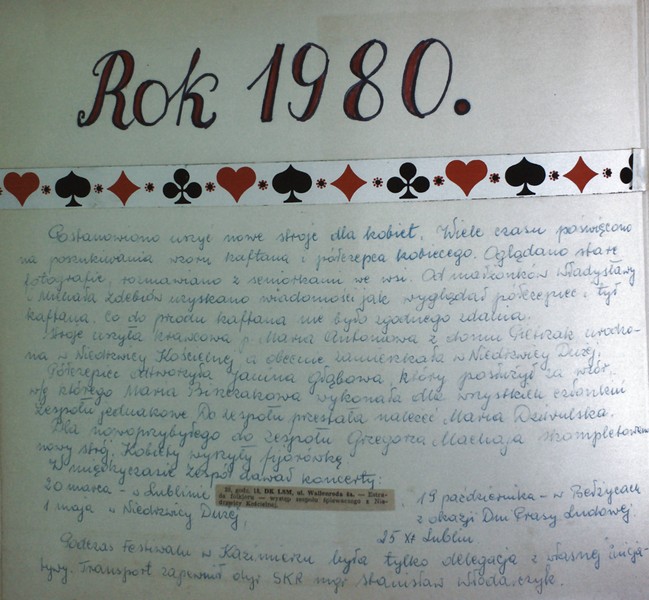 Rok 1980.
Postanowiono uszyć nowe stroje dla kobiet. Wiele czasu poświęcono
na poszukiwania wzoru kaftana i półczepca kobiecego. Oglądano stare
fotografie, rozmawiano z seniorkami we wsi. Od małżonków Władysławy
i Michała Zdebiów uzyskano wiadomości jak wyglądał półczepiec i tył
kaftana. Co do przodu kaftana nie było zgodnego zdania.
Stroje uszyła krawcowa p. Maria Antoniowa z domu Pietrzak urodzo-
na w Niedrzwicy Kościelnej a obecnie zamieszkała w Niedrzwicy Dużej.
Półczepiec odtworzyła Janina Głąbowa, który posłużył za wzór,
wg którego Maria Bliszczakowa wykonała dla wszystkich członkiń
zespołu jednakowe. Do zespołu przestała należeć Maria Dziwulska.
Dla nowoprzybyłego do zespołu Grzegorza Machaja skompletowano
nowy strój. Kobiety wyszyły fijorówkę
W międzyczasie zespół dawał koncerty:
20 marca - w Lublinie
20, godz. 18, DK LSM, ul. Wallenroda 4a. — Estra-
da folkloru — występ zespołu śpiewaczego z Nie-
drzwicy Kościelnej
1 maja w Niedrzwicy Dużej,
19 października - w Bełżycach
z okazji Dni Prasy Ludowej
25 XI Lublin
Podczas Festiwalu w Kazimierzu była tylko delegacja z własnej inicja-
tywy. Transport zapewnił dyr SKR mgr Stanisław Włodarczyk.